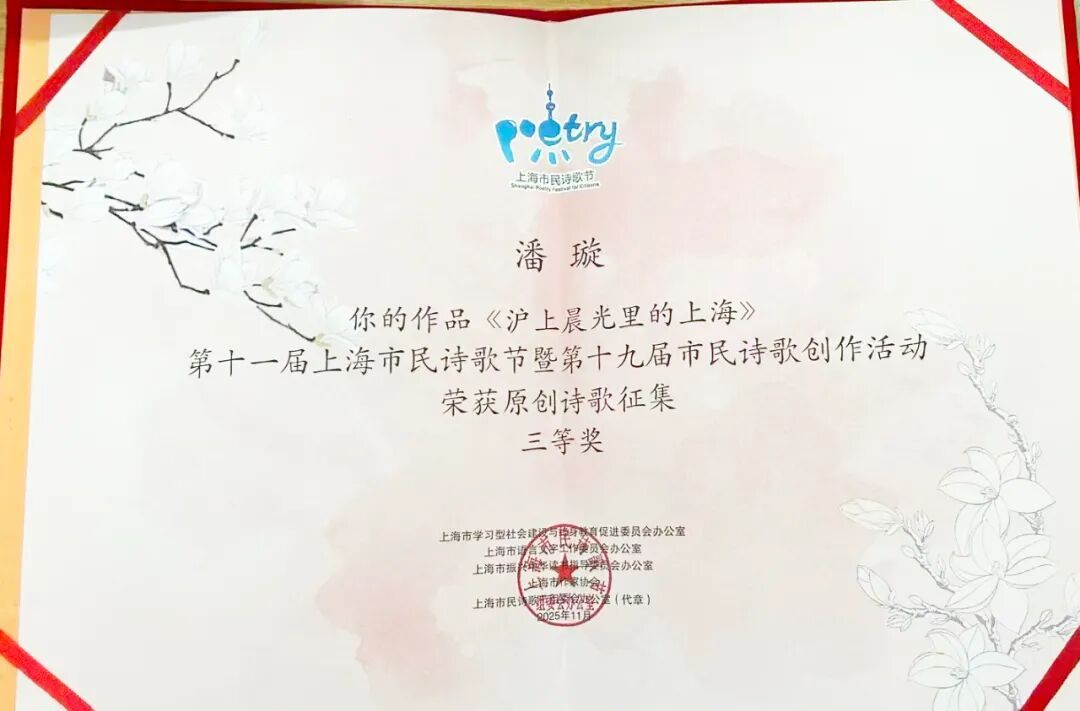 Poetry
上海市民诗歌节
Shanghai Poetry Festival for Citizens
潘 璇
你的作品《沪上晨光里的上海》
第十一届上海市民诗歌节暨第十九届市民诗歌创作活动
荣获原创诗歌征集
三等奖
上海市学习型社会建设与终身教育促进委员会办公室
上海市语言文字工作委员会办公室
上海市振兴中华读书指导委员会办公室
上海市作家协会
上海市民诗歌节组委会办公室（代章）
2025年11月
上海市民诗歌节
组委会办公室